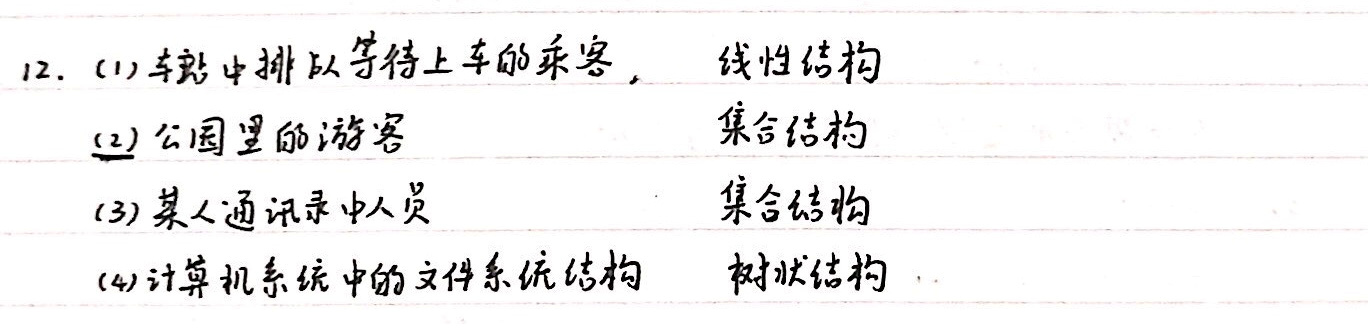 12. (1) 车站中排队等待上车的乘客. 线性结构
(2) 公园里的游客 集合结构
(3) 某人通讯录中人员 集合结构
(4) 计算机系统中的文件系统结构 树状结构